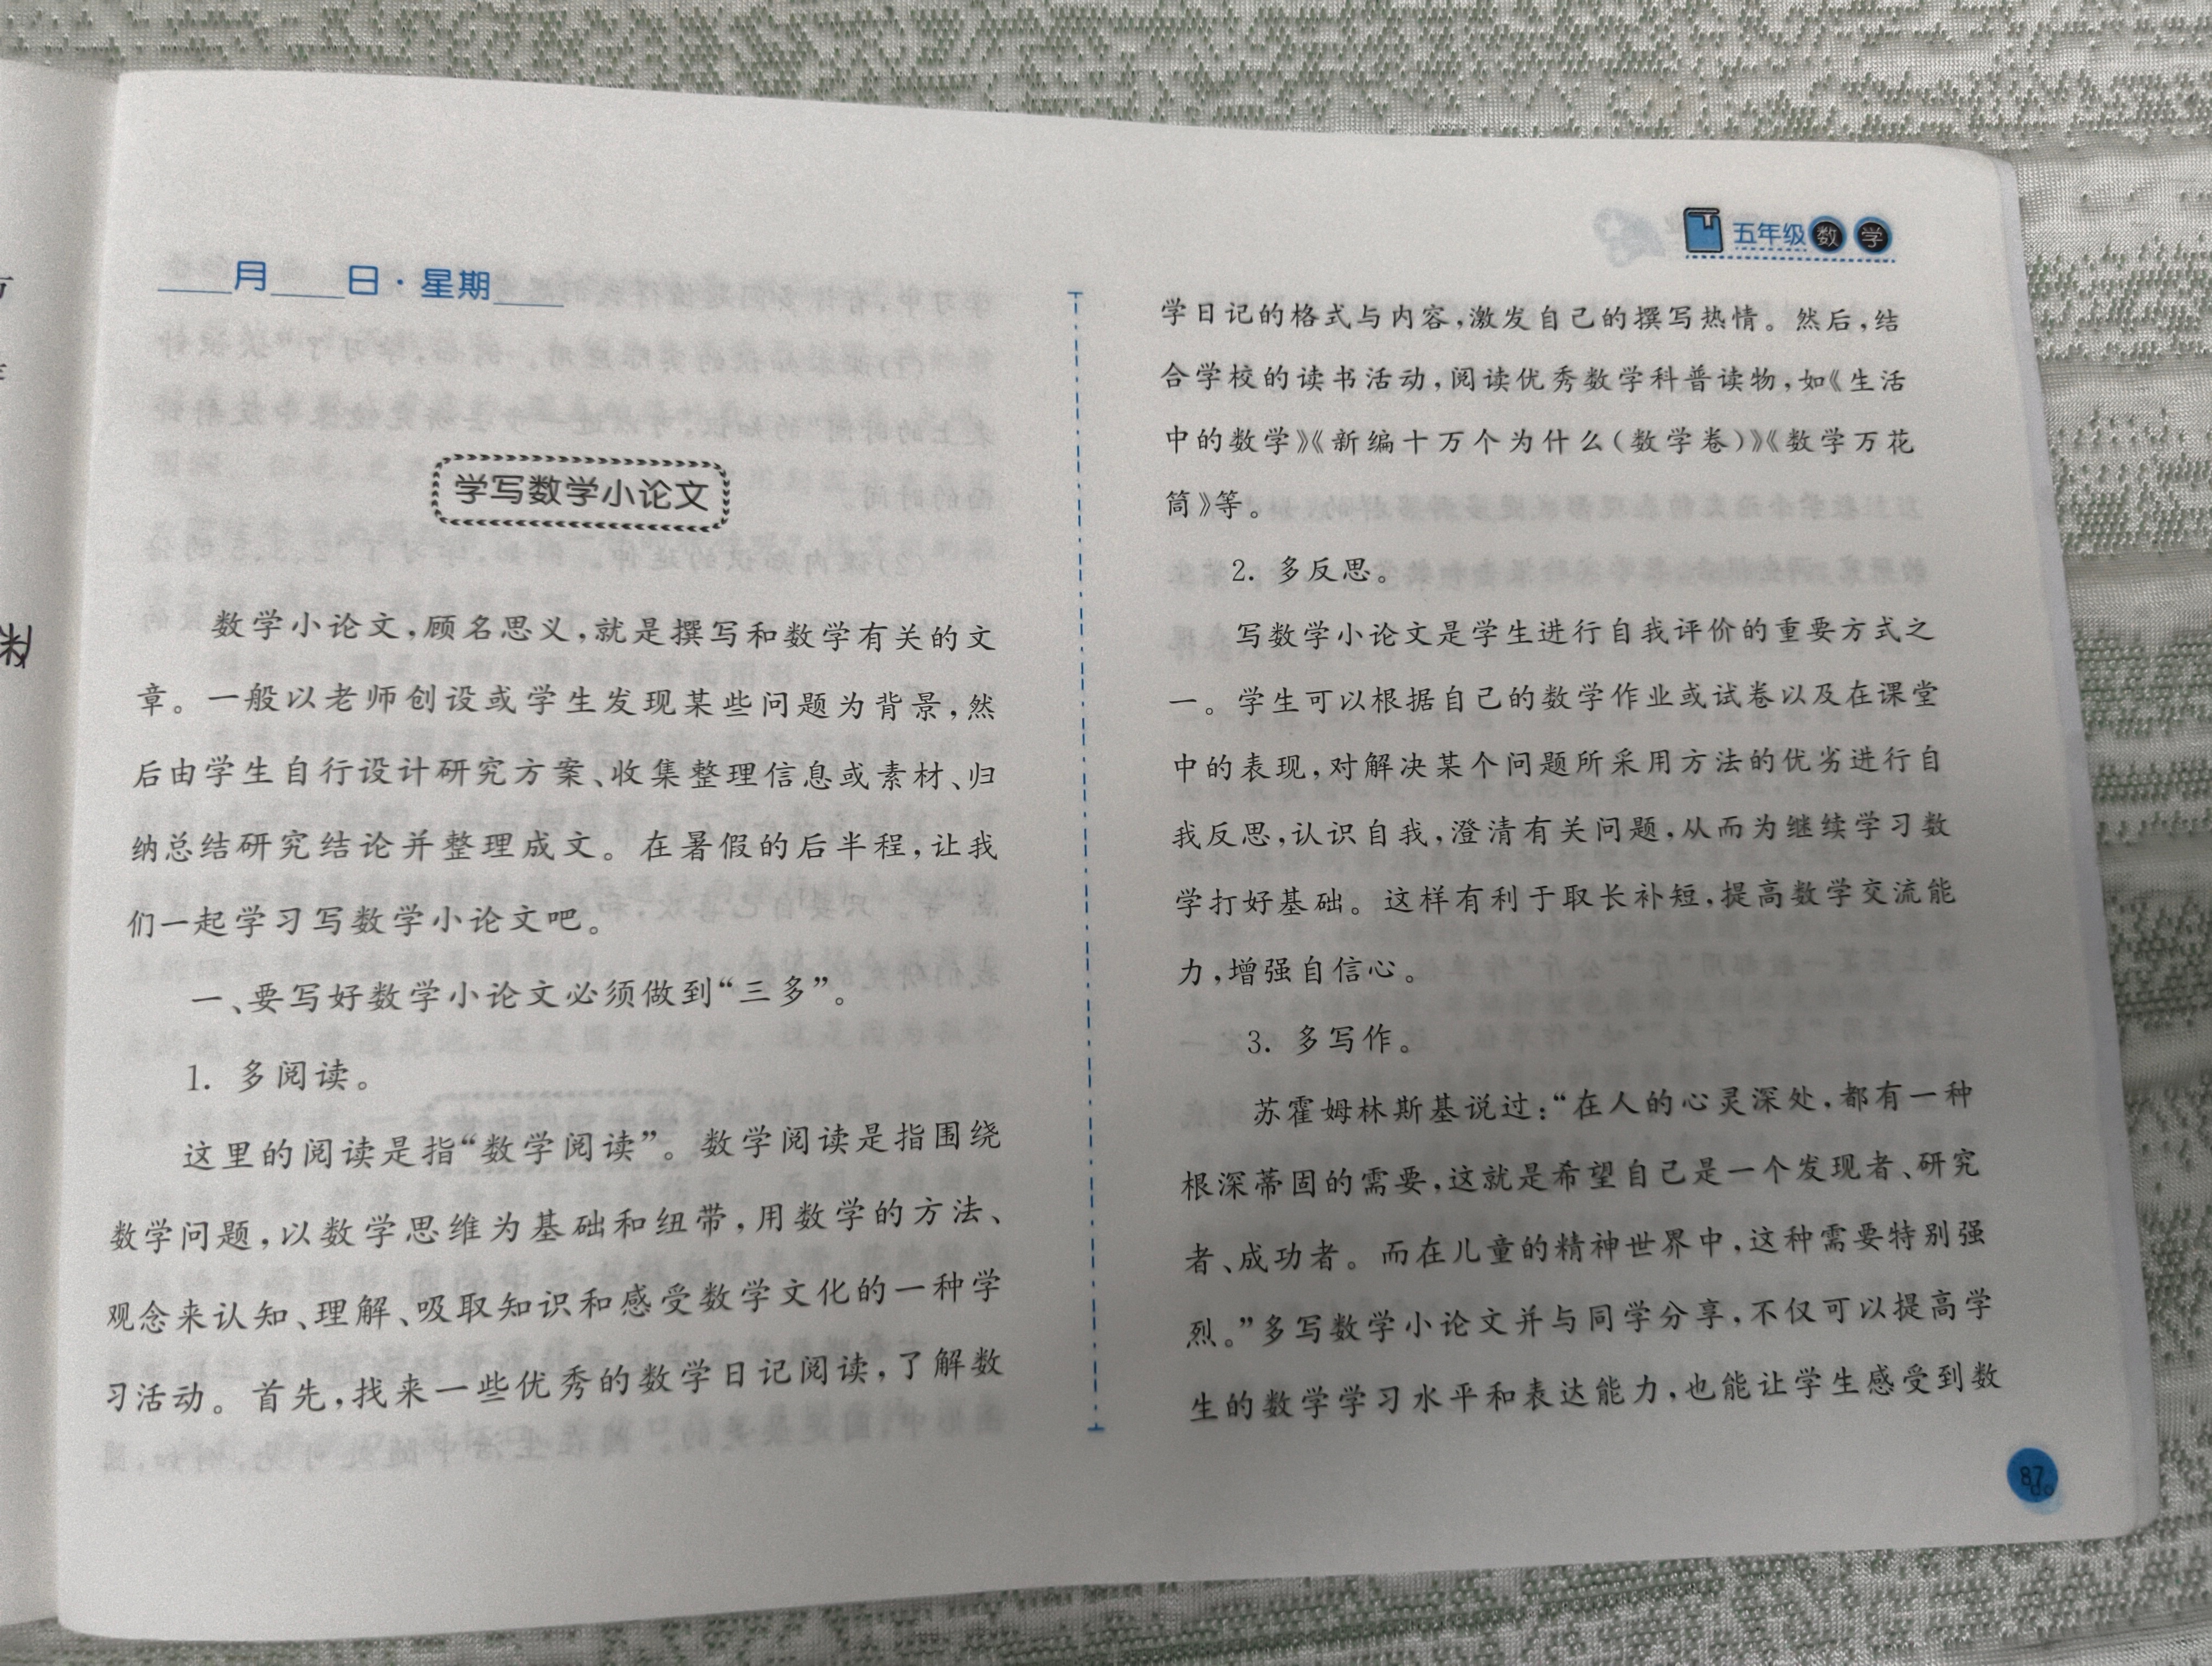 月 日·星期
学写数学小论文
数学小论文,顾名思义,就是撰写和数学有关的文
章。一般以老师创设或学生发现某些问题为背景,然
后由学生自行设计研究方案、收集整理信息或素材、归
纳总结研究结论并整理成文。在暑假的后半程,让我
们一起学习写数学小论文吧。
一、要写好数学小论文必须做到“三多”。
1. 多阅读。
这里的阅读是指“数学阅读”。数学阅读是指围绕
数学问题,以数学思维为基础和纽带,用数学的方法、
观念来认知、理解、吸取知识和感受数学文化的一种学
习活动。首先,找来一些优秀的数学日记阅读,了解数
五年级数学
学日记的格式与内容,激发自己的撰写热情。然后,结
合学校的读书活动,阅读优秀数学科普读物,如《生活
中的数学》《新编十万个为什么(数学卷)》《数学万花
筒》等。
2. 多反思。
写数学小论文是学生进行自我评价的重要方式之
一。学生可以根据自己的数学作业或试卷以及在课堂
中的表现,对解决某个问题所采用方法的优劣进行自
我反思,认识自我,澄清有关问题,从而为继续学习数
学打好基础。这样有利于取长补短,提高数学交流能
力,增强自信心。
3. 多写作。
苏霍姆林斯基说过:“在人的心灵深处,都有一种
根深蒂固的需要,这就是希望自己是一个发现者、研究
者、成功者。而在儿童的精神世界中,这种需要特别强
烈。”多写数学小论文并与同学分享,不仅可以提高学
生的数学学习水平和表达能力,也能让学生感受到数
87